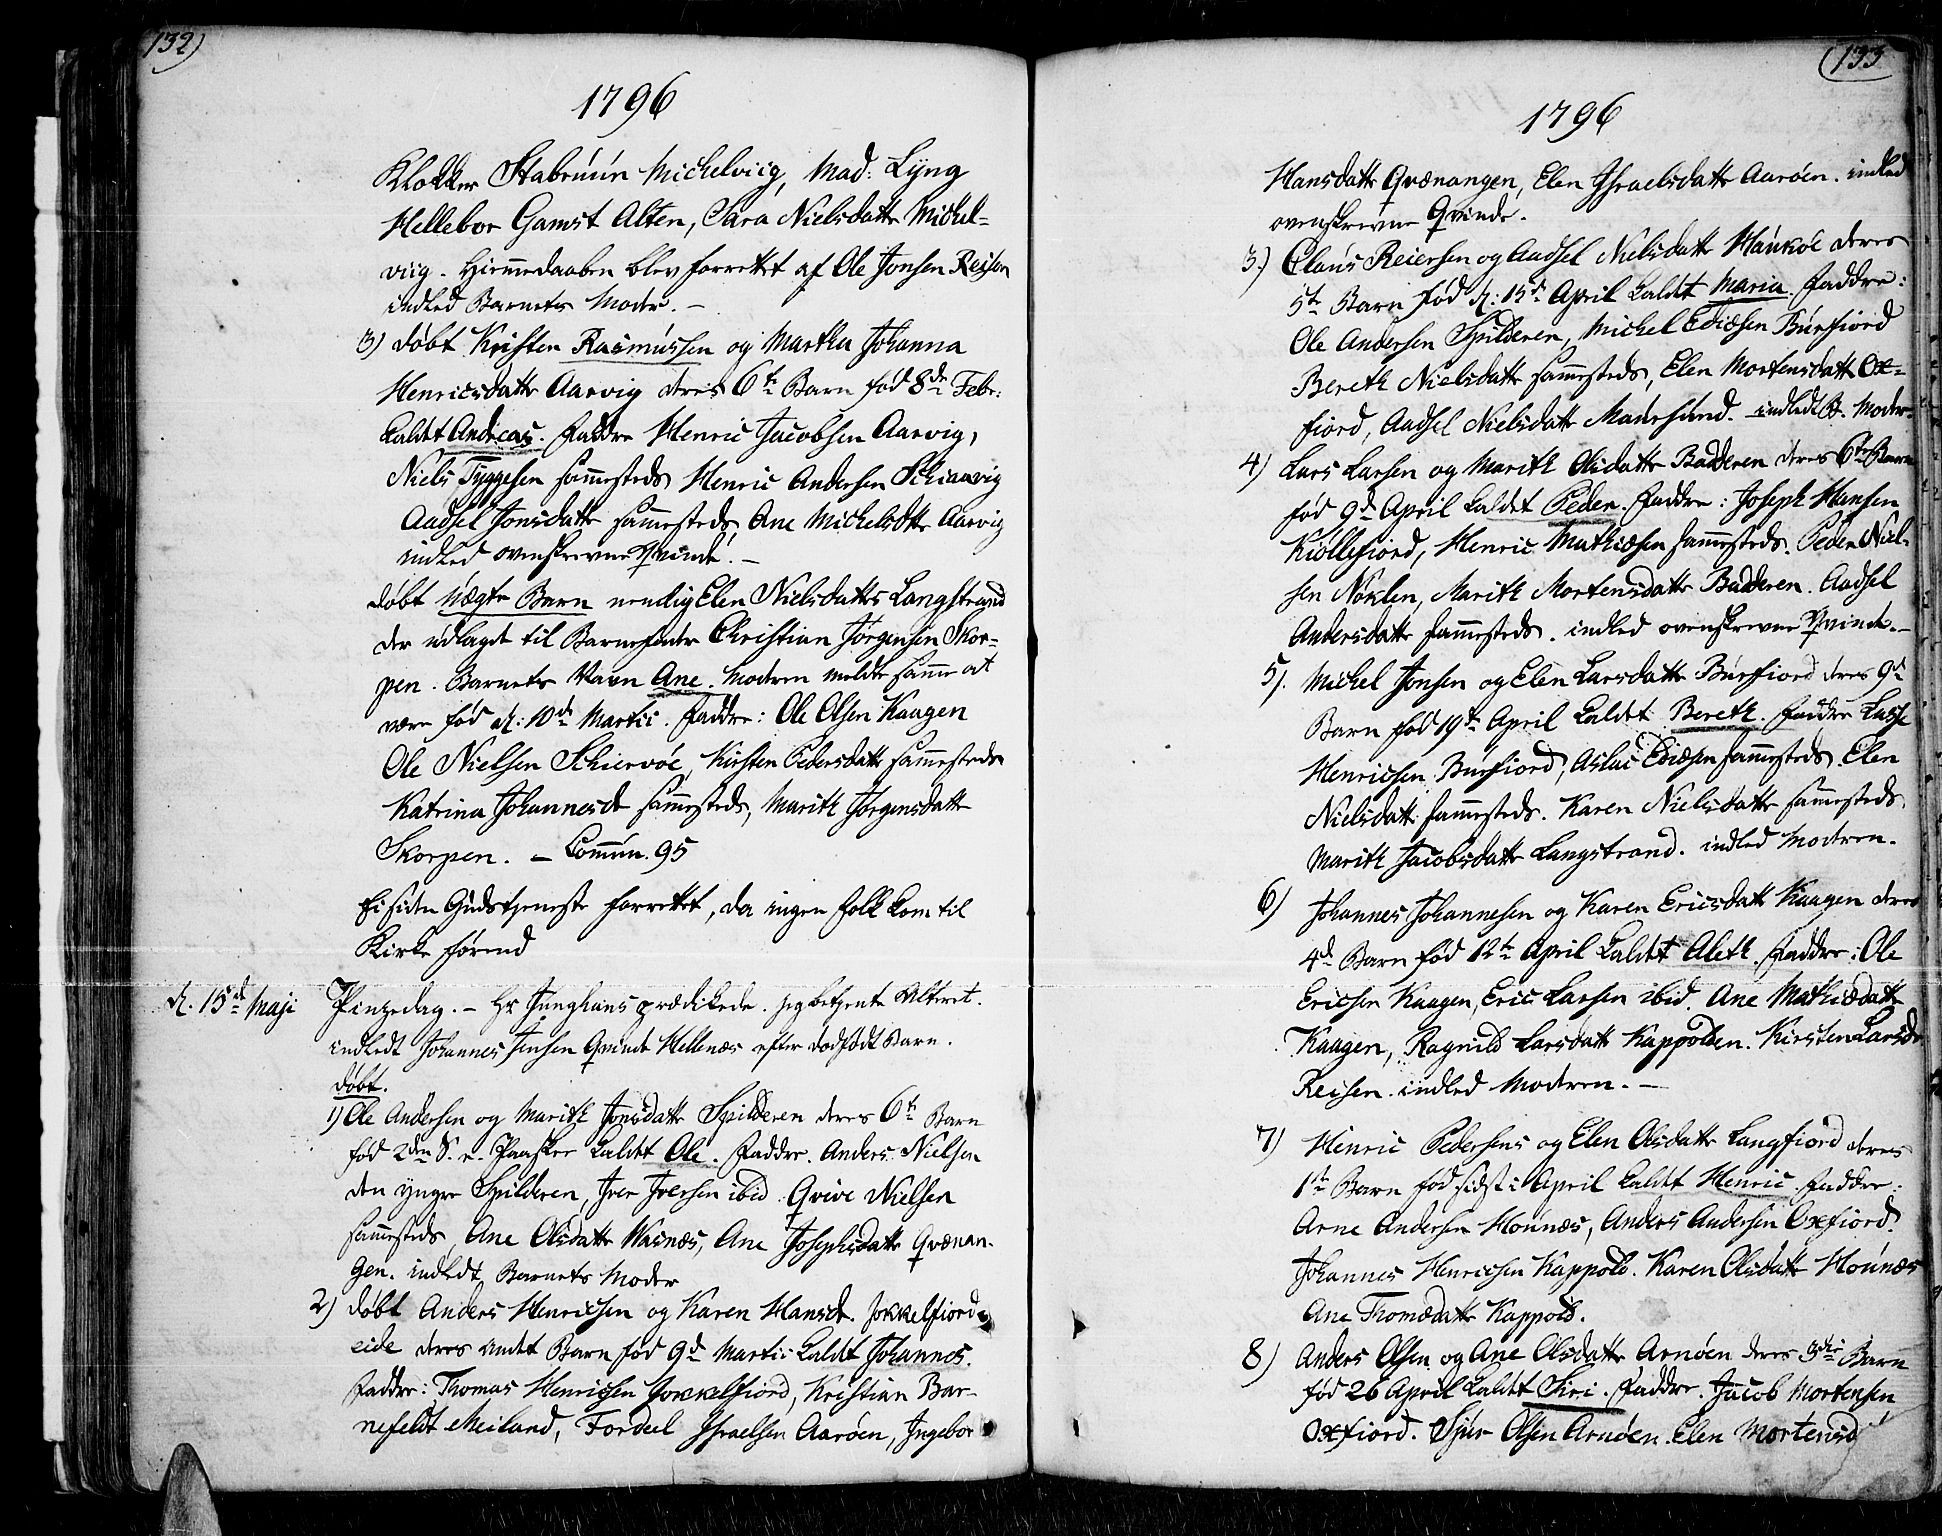 132)
1796
Klokker Stabrun Michelviig, Mad: Lyng
Hellebor Gamst Alten, Sara Nielsdattr Michel-
viig. Hiemmedaaben blev forrettet af Ole Jonsen Reisen
indled Barnets Moder. -
3) døbt Kristen Rasmussen og Martha Johanna
Henricsdattr Aarvig deres 6te Barn fød 8de Febr:
kaldt Andreas. Faddre Henric Jacobsen Aarvig,
Niels Tyggesen sammesteds Henric Andersen Schiaavig
Aadsel Jonsdattr sammesteds, Ane Michelsdttr Aarvig
indled ovenskrevne Qvinde. -
døbt uægte Barn nendig Elen Nielsdatters Langstrand
der udlagde til Barnefader Christian Jørgensen Skor-
pen. Barnets Navn Ane. Moderen meldte samme at
være fød d: 10de Martii. Faddre: Ole Olsen Kaagen
Ole Nielsen Schiervøe, Kirsten Pedersdattr sammesteds
Katrina Johannesdt sammesteds, Marith Jørgensdattr
Skorpen. - Commun. 95
Ei siden Gudstjeneste forrettet, da ingen folk kom til
Kirke førend
d. 15de Maji Pinzedag. - Hr Junghans prædikede. jeg betjente Alteret.
indledt Johannes Jensen Qvinde Hellenæs efter dødfødt Barn.
døbt.
1) Ole Andersen og Marith Jonsdattr Spilderen deres 6te Barn
fød 2den S. e. Paasker kaldet Ole. Faddre. Anders Nielsen
den yngre Spilderen, Iver Iversen ibid. Qvive Nielsen
sammesteds, Ane Olsdattr Wasnæs, Ane Josephsdattr Qvænan-
gen. indledt Barnets Moder
2) døbt Anders Henrichsen og Karen Hansdt. Jokkelfiord-
eide deres andet Barn fød 9de Martii kaldt Johannes.
Faddre: Thomas Henrichsen Jokkelfiord, Kristian Bar-
nefeldt Meiland, Fordeel Israelsen Aarøen, Ingebor
(133
1796
Hansdattr Qvænangen, Elen Israelsdattr Aarøen. indled
ovenskrevne Qvinde.
3.) Claus Reiersen og Aadsel Nielsdattr Haukøe deres
5te Barn fød d: 15de April kaldet Maria. Faddre:
Ole Andersen Spilderen, Michel Ediæsen Burfiord
Bereth Nielsdattr sammesteds, Elen Mortensdattr Ox-
fiord, Aadsel Nielsdattr Maursund. indledt B. Moder.
4) Lars Larsen og Marith Olsdattr Badderen deres 6te Barn
fød 9de April kaldet Peder. Faddre: Joseph Hansen
Kiollefiord, Henric Mathiæsen sammesteds. Peder Niel-
sen Noklen, Marith Mortensdattr Badderen. Aadsel
Andersdattr sammesteds. indled ovenskrevne Qvinde. -
5). Michel Jonsen og Elen Larsdattr Burfiord deres 9de
Barn fød 19te April kaldet Bereth. Faddre Lasse
Henrichsen Burfiord, Aslac Ediæsen sammesteds. Elen
Nielsdattr sammesteds. Karen Nielsdattr sammesteds
Marith Jacobsdattr Langstrand. indled Moderen.
6) Johannes Johannesen og Karen Ericsdattr Kaagen deres
4de Barn fød 12te April kaldet Aleth. Faddre: Ole
Ericsen Kaagen, Eric Larsen ibid. Ane Mathiædattr
Kaagen, Ragnild Larsdattr Kappolden. Kirsten Larsdr
Reisen. indled Moderen. -
7) Henric Pedersens og Elen Olsdattr Langfiord deres
1ste Barn fød sidst i April kaldet Henric. Faddre:
Arne Andersen Hounæs, Anders Andersen Oxfiord.
Johannes Henricsen Kappold. Karen Olsdattr Hounæs
Ane Thomædattr Kappold.
8) Anders Olsen og Ane Olsdattr Arnøen deres 3die Barn
fød 26 April kaldet Siri. Faddre. Jacob Mortensen
Oxfiord. Sjur Olsen Arnøen. Elen Mortensd